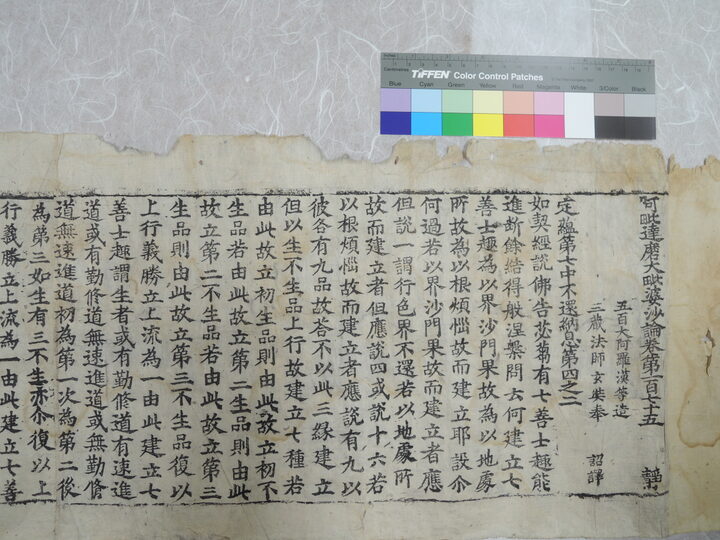 Inches
Centimetres
TIFFEN Color Control Patches
Blue Cyan Green Yellow Red Magenta White 3/Color Black
阿毗達磨大毗婆沙論卷第一百七十五
五百大阿羅漢等造
三藏法師玄奘奉 詔譯
定蘊第七中不還納息第四之二
如契經說佛告苾芻有七善士趣能
進斷餘結得般涅槃問云何建立七
善士趣為以界沙門果故為以地處
所故為以根煩惱故而建立耶設尒
何過若以界沙門果故而建立者應
但說一謂行色界不還若以地處所
故而建立者但應說四或說十六若
以根煩惱故而建立者應說有九以
彼各有九品故荅不以此三緣建立
但以生不生品上行故建立七種若
由此故立初生品則由此故立初不
生品若由此故立第二生品則由此
故立第二不生品若由此故立第三
生品則由此故立第三不生品復以
上行義勝立上流為一由此建立七
善士趣謂生者或有勤修道有速進
道或有勤修道無速進道或無勤修
道無速進道初為第一次為第二後
為第三如生有三不生亦尒復以上
行義勝立上流為一由此建立七善